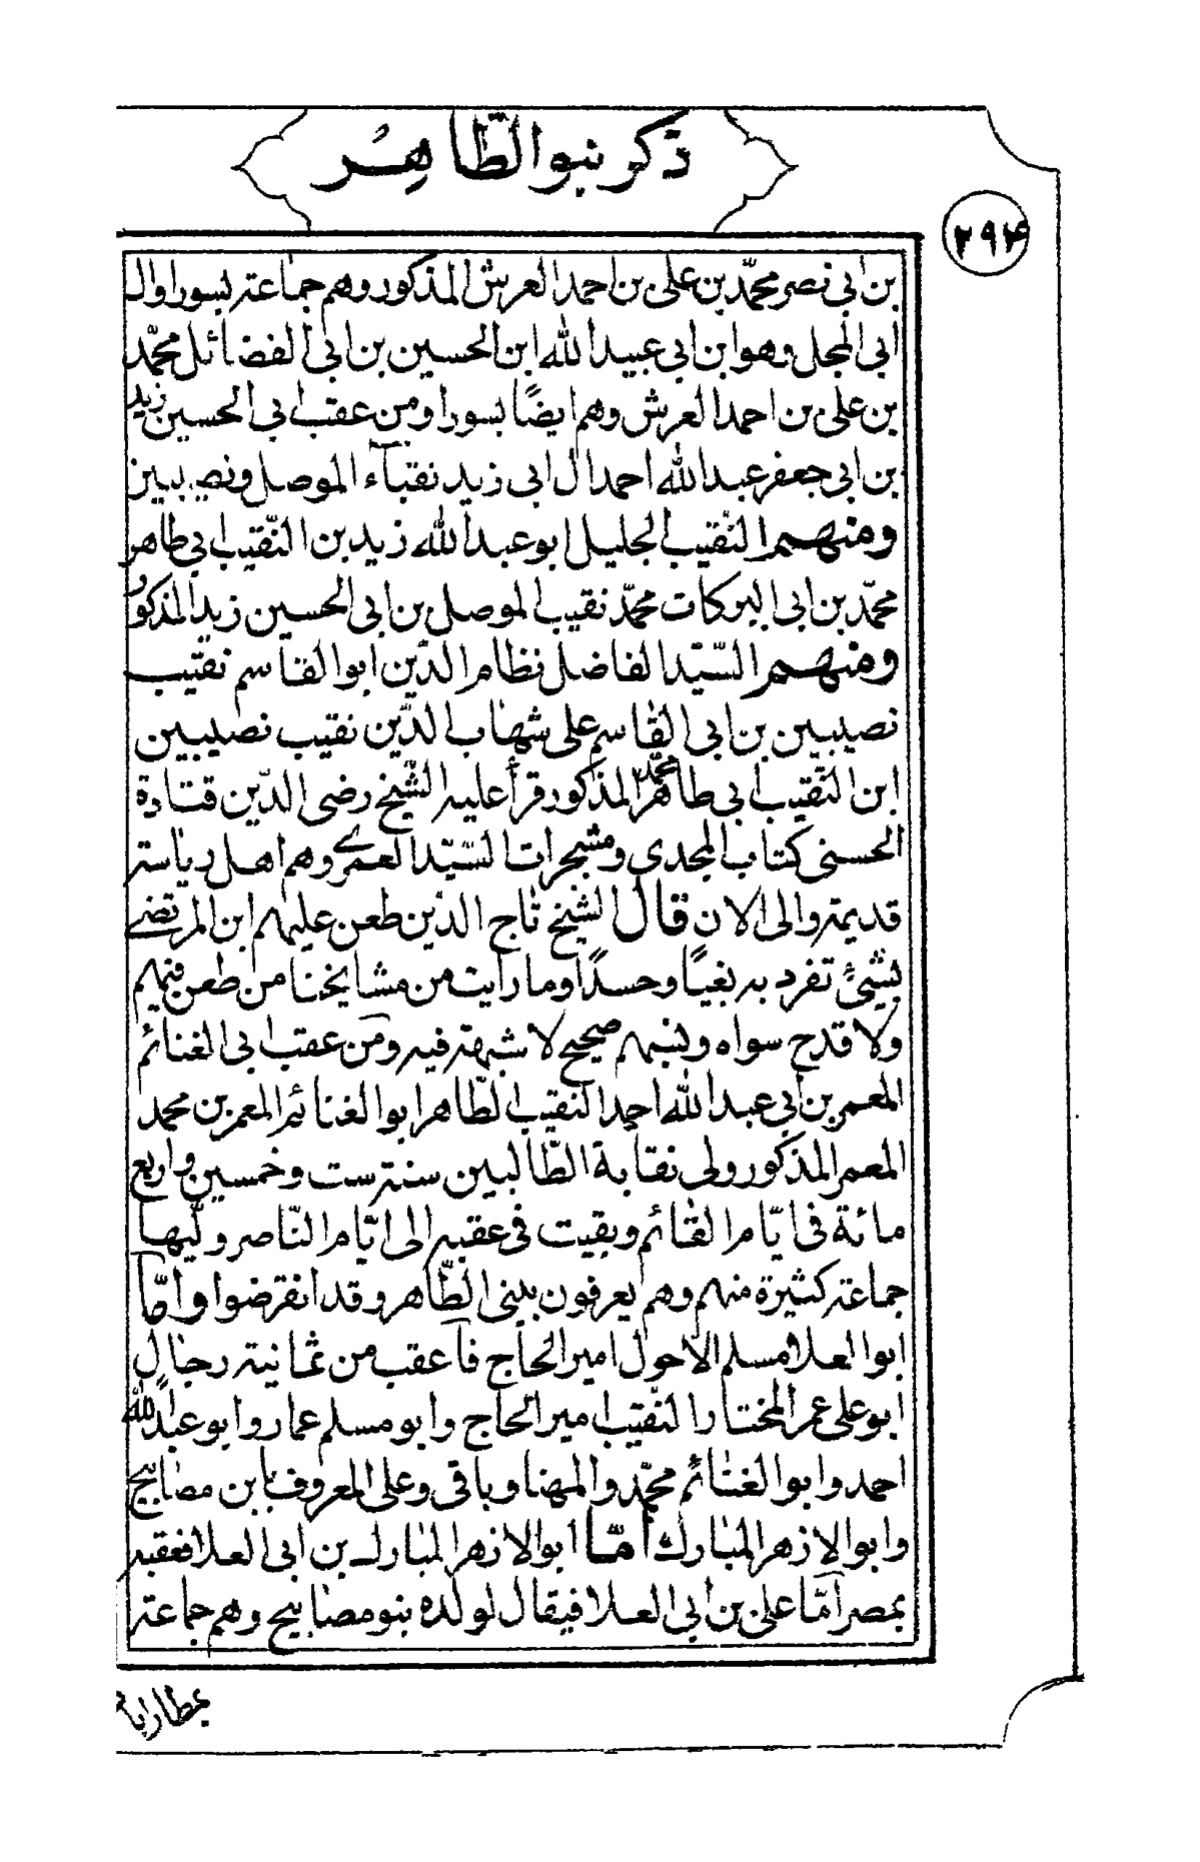 ذكر بنو الطّاهِر
٢٩۴
بن ابي نصر محمّد بن علي بن احمد العرش المذكور وهم جماعة بسورا وال
ابي المجل وهو ابن ابي عبيد الله ابن الحسين بن ابي الفضائل محمّد
بن علي بن احمد العرش وهم ايضًا بسورا ومن عقب ابي الحسين زيد
بن ابي جعفر عبد الله احمد ال ابي زيد نقبآء الموصل ونصيبين
ومنهم النقيب الجليل ابو عبد الله زيد بن النّقيب ابي طاهر
محمّد بن ابي البركات محمّد نقيب الموصل بن ابي الحسين زيد المذكور
ومنهم السّيّد الفاضل نظام الدّين ابو القاسم نقيب
نصيبين بن ابي القاسم علي شهاب الدّين نقيب نصيبين
ابن النّقيب ابي طاهر محمّد المذكور قرأ عليه الشّيخ رضي الدّين قتادة
الحسني كتاب المجدي ومشجرات السّيّد العمري وهم اهل رياسة
قديمة والى الان قال الشيخ تاج الدّين طعن عليهم ابن المرتضى
بشيئ تفرد به بغيًا وحسدًا وما رايت من مشايخنا من طعن فيهم
ولا قدح سواه ونسبهم صحيح لا شبهة فيه ومن عقب ابي الغنائم
المعمر بن ابي عبد الله احمد النقيب الطّاهر ابو الغنائم المعمر بن محمد
المعمر المذكور ولى نقابة الطّالبين سنة ست وخمسين واربع
مائة في ايّام القائم وبقيت في عقبه الى ايّام النّاصر وليّها
جماعة كثيرة منهم وهم يعرفون ببني الطّاهر وقد انقرضوا وامّا
ابو العلا مسلم الاحول امير الحاج فآعقب من ثمانية رجال
ابو علي عمر المختار النّقيب امير الحاج وابو مسلم عمار وابو عبد الله
احمد وابو الغنائم محمّد والمهنا وباقي وعلي المعروف بابن مصابيح
وابو الازهر المبارك امّا ابو الازهر المبارك بن ابي العلا فعقبه
بمصر امّا علي بن ابي العلا فيقال لولده بنو مصابيح وهم جماعة